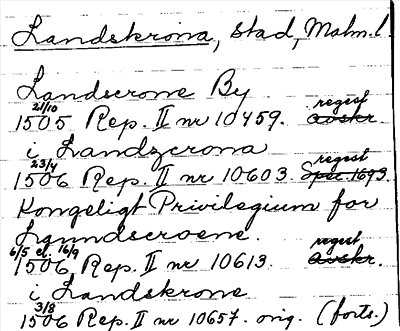 Landskrona, stad, Malm. l.
Landscrone By
21/10 regest
1505 Rep. II nr 10459. avskr.
i Landzcrona
23/4 regest
1506 Rep. II nr 10603. Spec. 1693.
Kongeligt Privilegium for
Lgundscroene.
6/5 el. 16/9 regest
1506 Rep. II nr 10613. avskr.
i Landskrone
3/8
1506 Rep. II nr 10657. orig. (forts.)